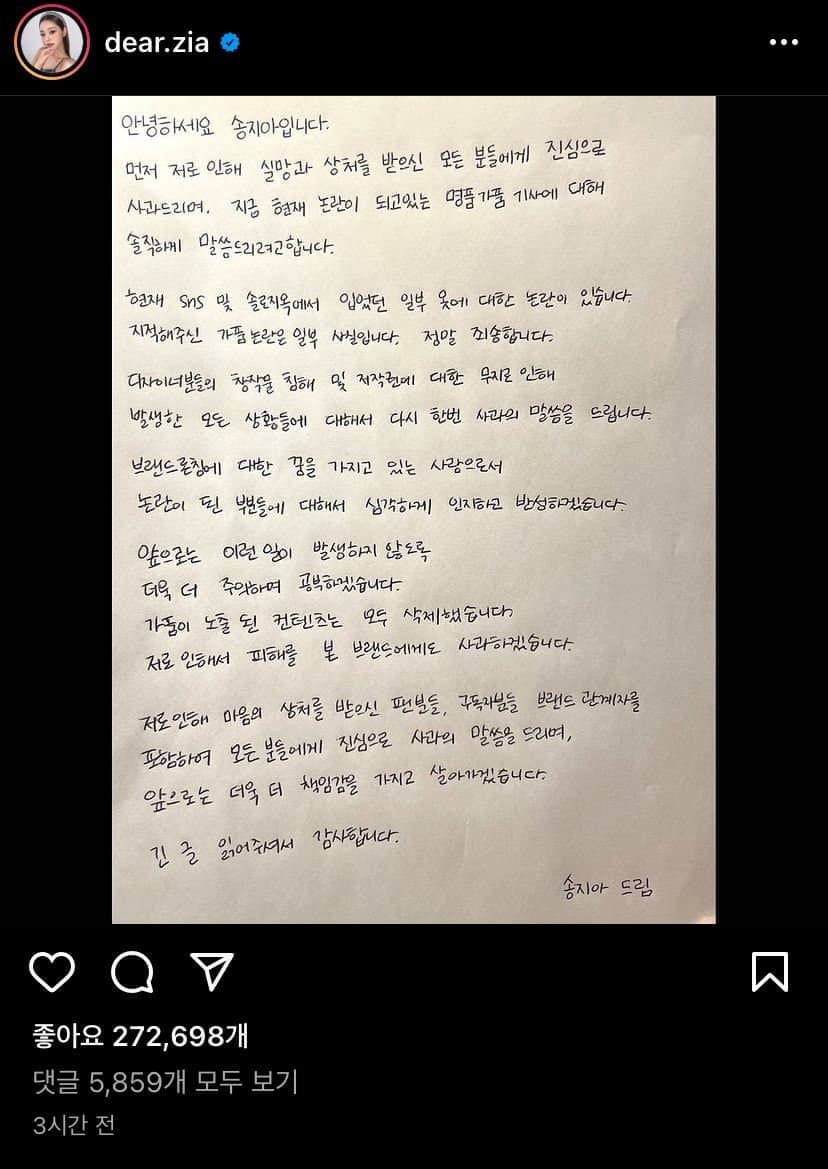 dear.zia
안녕하세요 송지아입니다.
먼저 저로 인해 실망과 상처를 받으신 모든 분들에게 진심으로
사과드리며, 지금 현재 논란이 되고있는 명품가품 기사에 대해
솔직하게 말씀드리려고합니다.
현재 sns 및 솔로지옥에서 입었던 일부 옷에 대한 논란이 있습니다.
지적해주신 가품논란은 일부 사실입니다. 정말 죄송합니다.
디자이너분들의 창작물 침해 및 저작권에 대한 무지로 인해
발생한 모든 상황들에 대해서 다시 한번 사과의 말씀을 드립니다.
브랜드론칭에 대한 꿈을 가지고 있는 사람으로서
논란이 된 부분들에 대해서 심각하게 인지하고 반성하겠습니다.
앞으로는 이런 일이 발생하지 않도록
더욱 더 주의하며 공부하겠습니다.
가품이 노출 된 컨텐츠는 모두 삭제했습니다.
저로 인해서 피해를 본 브랜드에게도 사과하겠습니다.
저로인해 마음의 상처를 받으신 팬분들, 구독자분들 브랜드 관계자를
포함하여 모든 분들에게 진심으로 사과의 말씀을 드리며,
앞으로는 더욱 더 책임감을 가지고 살아가겠습니다.
긴 글 읽어주셔서 감사합니다.
송지아 드림
좋아요 272,698개
댓글 5,859개 모두 보기
3시간 전